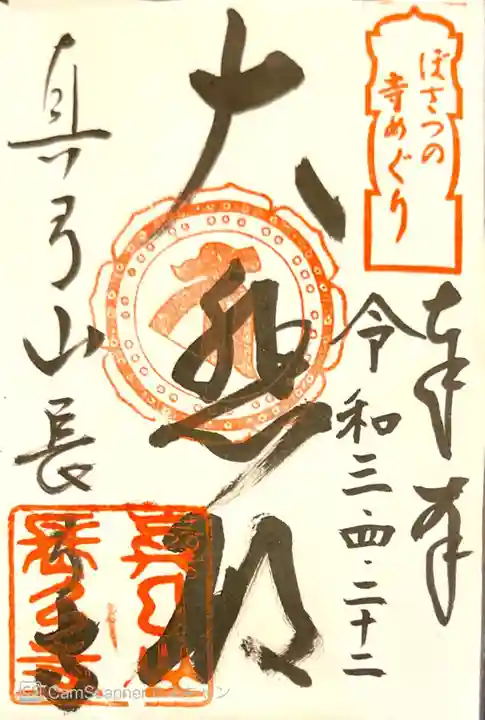 ぼさつの
寺めぐり
奉拝
令和三・四・二十二
大悲殿
真弓山長弓寺
CamScanner でスキャン